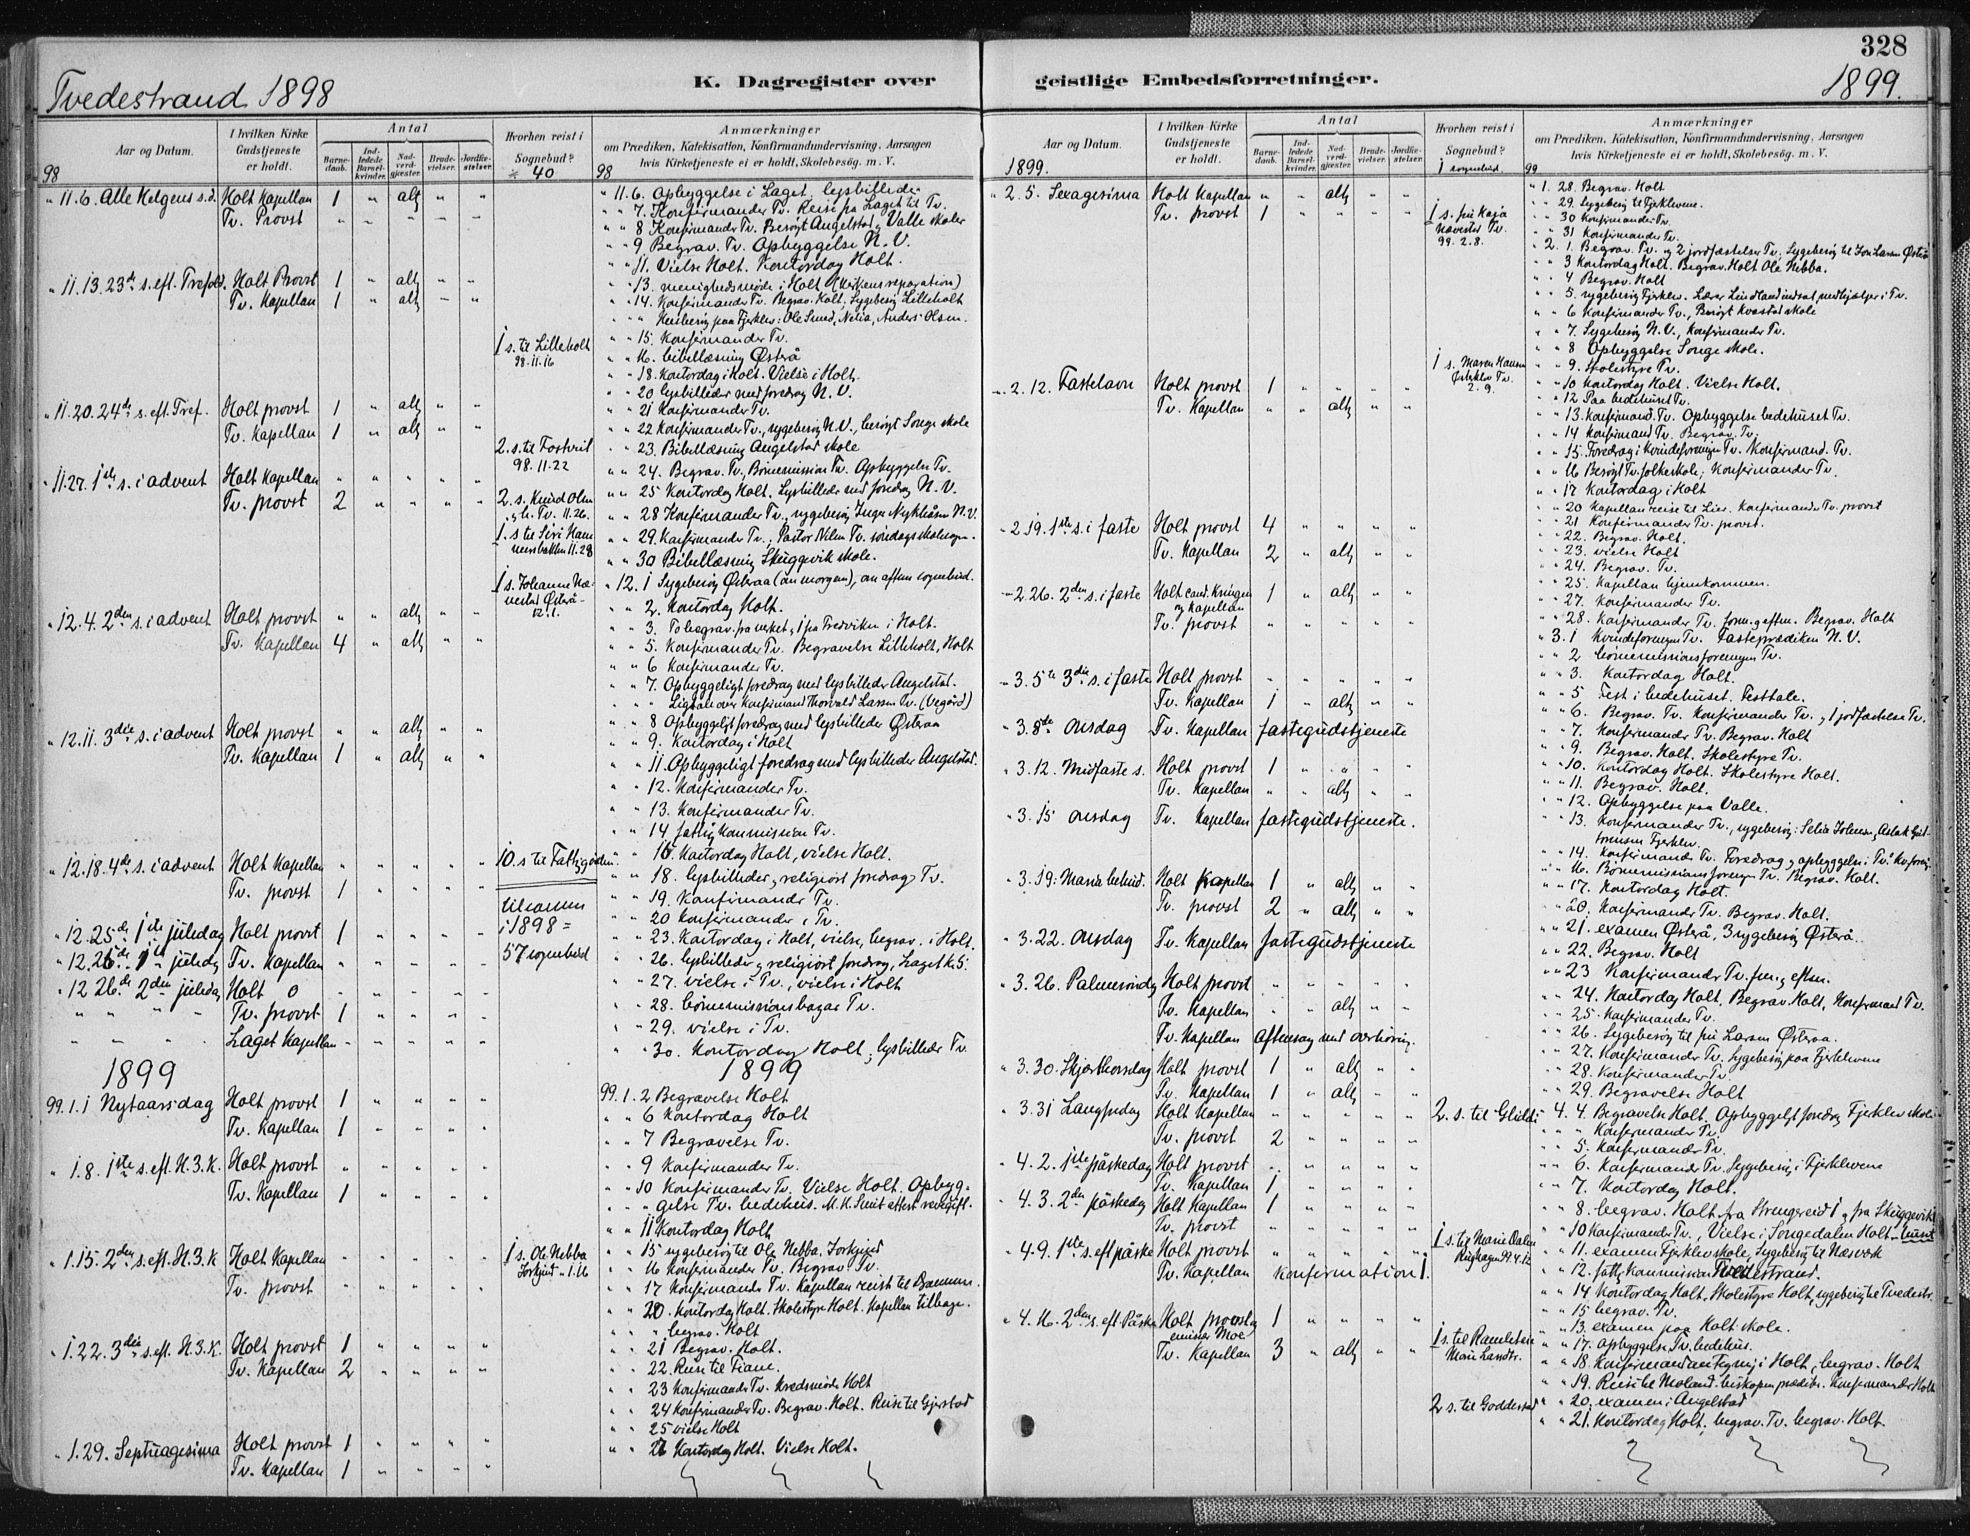 328
Tvedestrand 1898
K. Dagregister over geistlige Embedsforretninger.
1899.
Aar og Datum.
I hvilken Kirke Gudstjeneste er holdt.
Antal
Barnedaab.
Indledede Barselkvinder.
Nadverdgjester.
Brudevielser.
Jordfæstelser.
Hvorhen reist i Sognebud?
40
Anmærkninger
om Prædiken, Katekisation, Konfirmandundervisning, Aarsagen
hvis Kirketjeneste ei er holdt, Skolebesøg. m. V.
98
98
" 11.6. Alle Helgens s.d. Holt Kapellan 1 " altg " "
Tv. Provst " " " " "
" 11.13. 23de s. eft. Trefold. Holt Provst 1 " altg " "
Tv. Kapellan 1 " altg " "
1 s. til Lilleholt
98.11.16
" 11.20. 24de s. eft. Tref. Holt provst 1 " altg " "
Tv. Kapellan 1 " altg " "
2 s. til Fostveit
98.11.22
" 11.27. 1ste s. i advent Holt Kapellan " " " " "
Tv. provst 2 " " " "
2 s. Knud Olsen
Tv. 11.26.
1 s. til Siri
11.28
1 s. Johanne
Østerå
12.1.
" 12.4. 2den s. i advent Holt provst " " altg " "
Tv. Kapellan 4 " altg " "
" 12.11. 3die s. i advent Holt provst " " altg " "
Tv. Kapellan 1 " altg " "
" 12.18. 4de s. i advent Holt Kapellan " " " " "
Tv. provst 1 " " " "
10 s. til Fattiggården
tilsammen
i 1898 =
57 sognebud
" 12.25de 1ste juledag Holt provst 1 " " " "
" 12.25de 1ste juledg Tv. Kapellan " " " " "
" 12.26de 2den juledag Holt 0 " " " " "
" " " " Tv. provst 1 " " " "
" " " " Laget Kapellan " " " " "
1899
99.1.1 Nytaarsdag Holt provst 1 " " " "
Tv. Kapellan 1 " " " "
" 1.8. 1ste s. eft. H.3.K. Holt provst " " " " "
Tv. Kapellan 1 " " " "
" 1.15. 2den s. eft. H.3.K. Holt Kapellan " " " " "
Tv. provst " " " " "
1 s. Ole Nebba
1.16
" 1.22. 3die s. eft. H.3.K. Holt provst 1 " " " "
Tv. Kapellan 2 " " " "
" 1.29. Septuagesima Holt provst 1 " " " "
Tv. Kapellan 1 " " " "
" 11.6. Opbyggelse i Laget, lysbilleder
" " 7. Konfirmander Tv. Reise fra Laget til Tv.
" " 8 Konfirmander Tv. Besøgt Angelstad og Valle skoler
" " 9 Begrav. Tv. Opbyggelse N. V.
" " 11. Vielse Holt. Kontordag Holt.
" " 13. menighedsmøde i Holt (Kirkens reparation)
" " 14. Konfirmander Tv. Begrav. Holt. Sygebesøg Lilleholt
" " Husbesøg paa Fjerklev: Ole Smed, Nilia, Anders Olsen.
" " 15. Konfirmander Tv.
" " 16. bibellæsning Østerå
" " 18. Kontordag i Holt. Vielse i Holt.
" " 20 lysbilleder med foredrag N. V.
" " 21 Konfirmander Tv.
" " 22 Konfirmander Tv., sygebesøg N. V., besøgt Songe skole
" " 23. Bibellæsning Angelstad skole
" " 24. Begrav. Tv., Børnemission Tv. Opbyggelse Tv.
" " 25 Kontordag Holt. Lysbilleder med foredrag N. V.
" " 28 Konfirmander Tv., sygebesøg Inger N. V.
" " 29. Konfirmander Tv., Pastor Nilsen Tv.
" " 30 Bibellæsning Skuggevik skole.
" 12. 1 Sygebesøg Østeraa (om morgen), om aften sognebud.
" " 2. Kontordag Holt.
" " 3. To begrav. fra verket, 1 fra Tredviken i Holt.
" " 5. Konfirmander Tv. Begravelse Lilleholt, Holt
" " 6 Konfirmander Tv.
" " 7. Opbyggeligt foredrag med lysbilleder Angelstad.
" " Ligtale over Konfirmand Thorvald Larsen Tv. (Vegård)
" " 8 Opbyggeligt foredrag med lysbilleder Østeraa
" " 9. Kontordag i Holt
" " 11. Opbyggeligt foredrag med lysbilleder Angelstad.
" " 12. Konfirmander Tv.
" " 13. Konfirmander Tv.
" " 14 fattigkommission Tv.
" " 16. Kontordag Holt, vielse Holt.
" " 18. lysbilleder, religiøst foredrag Tv.
" " 19. Konfirmander Tv.
" " 20 Konfirmander i Tv.
" " 23. Kontordag i Holt, vielse, begrav. i Holt.
" " 26. lysbilleder, religiøst foredrag, Laget k. 5.
" " 27. vielse i Tv., vielse i Holt
" " 28. børnemissionsbazar Tv.
" " 29. vielse i Tv.
" " 30. Kontordag Holt, lysbilleder Tv
1899
99. 1. 2 Begravelse Holt
" " 6 Kontordag Holt
" " 7 Begravelse Tv.
" " 9 Konfirmander Tv.
" " 10 Konfirmander Tv. Vielse Holt. Opbyg=
" " gelse Tv. bedehus.
" " 11 Kontordag Holt
" " 15 sygebesøg til Ole Nebba
" " 16 Konfirmander Tv. Begrav Tv.
" " 17 Konfirmander Tv. Kapellan reist til Drammen.
" " 20. Kontordag Holt. Skolestyre Holt. Kapellan tilbage.
" " " begrav. Holt
" " 21 Begrav. Holt.
" " 22. Reise til Fiane.
" " 23 Konfirmander Tv. Kredsmøde Holt
" " 24 Konfirmander Tv. Begrav. Holt. Reise til Gjerstad
" " 25 vielse Holt
" " 26 Kontordag Holt. Vielse Holt.
Aar og Datum.
I hvilken Kirke Gudstjeneste er holdt.
Antal
Barnedaab.
Indledede Barselkvinder.
Nadverdgjester.
Brudevielser.
Jordfæstelser.
Hvorhen reist i Sognebud?
1 sognebud
Anmærkninger
om Prædiken, Katekisation, Konfirmandundervisning, Aarsagen
hvis Kirketjeneste ei er holdt, Skolebesøg. m. V.
1899.
99
" 2.5. Sexagesima Holt Kapellan " " altg " "
Tv. provst 1 " " " "
1 s. fru Kaja
Tv.
99. 2. 8.
" 2.12. Fastelavn Holt provst 1 " " " "
Tv. Kapellan " " altg " "
1 s. Maren Hansen
Tv.
2.9.
" 2.19. 1ste s. i faste Holt provst 4 " " " "
Tv. Kapellan 2 " altg " "
" 2.26. 2den s. i faste Holt cand. 1 " altg " "
og Kapellan
Tv. provst " " " " "
" 3.5te 3die s. i faste Holt provst " " " " "
Tv. Kapellan 1 " altg " "
" 3.8de Onsdag Tv. Kapellan fastegudstjeneste
" 3.12. Midfaste s. Holt provst 1 " " " "
Tv. Kapellan " " altg " "
" 3.15 onsdag Tv. Kapellan fastegudstjeneste.
" 3.19. Maria bebud. Holt Kapellan 1 " altg " "
Tv. provst 2 " altg " "
" 3.22. Onsdag Tv. Kapellan fastegudstjeneste
" 3.26. Palmesøndg Holt provst " " " " "
Tv. Kapellan " " altg " "
Tv. Kapellan Aftensang med overhøring.
" 3.30. Skjærthorsdag Holt provst 1 " altg " "
Tv. Kapellan 1 " altg " "
" 3.31 Langfredag Holt Kapellan " " " " "
Tv. provst 2 " " " "
2 s. til
" 4.2. 1ste påskedag Holt provst " " " " "
Tv. Kapellan 1 " " " "
" 4.3. 2den påskedag Holt Kapellan 1 " " " "
Tv. provst " " " " "
" 4.9. 1ste s. eft påske Holt provst " " " " "
Tv. Kapellan Konfirmation 1.
1 s. til Marie Dalen
99.4.12
" 4.16. 2den s. eft. Påske Holt provst og 1 " " " "
emissær Moe
Tv. Kapellan 3 " altg " "
1 s. til
2 s. til Goddestad
" 1. 28. Begrav. Holt
" " 29. Sygebesøg til Fjerklevene.
" " 30 Konfirmander Tv.
" " 31 Konfirmander Tv.
" 2. 1. Begrav. Tv. og 2 jordfæstelser Tv. Sygebesøg til Jon Larsen Østerå
" " 3 Kontordag Holt. Begrav. Holt Ole Nebba.
" " 4 Begrav. Holt
" " 5. sygebesøg Fjerklev. Lærer Lindland indsat, medhjælper i Tv.
" " 6 Konfirmander Tv., Besøgt Kvastad skole
" " 7. Sygebesøg N. V., Konfirmander Tv.
" " 8 Opbyggelse Songe skole.
" " 9. Skolestyre Tv.
" " 10 Kontordag Holt. Vielse Holt.
" " 12 Paa bedehuset Tv.
" " 13. Konfirmand. Tv. Opbyggelse bedehuset Tv.
" " 14 Konfirmand Tv. Begrav. Tv.
" " 15. Foredrag i Kvindeforeningen Tv. Konfirmand. Tv.
" " 16 Besøgt Tv. folkeskole, Konfirmander Tv.
" " 17 Kontordag i Holt
" " 20 Kapellan reise til Lier. Konfirmander Tv. provst
" " 21 Konfirmander Tv. provst.
" " 22. Begrav. Holt.
" " 23. vielse Holt
" " 24. Begrav. Tv.
" " 25. Kapellan hjemkommen.
" " 27. Konfirmander Tv.
" " 28. Konfirmander Tv. form. og eftm. Begrav. Holt
" 3. 1 Kvindeforeningen Tv. Fasteprædiken N. V.
" " 2 børnemissionsforeningen Tv.
" " 3. Kontordag Holt.
" " 5 Fest i bedehuset. Festtale.
" " 6. Begrav. Tv. Konfirmander Tv., 1 jordfæstelse Tv.
" " 7. Konfirmander Tv. Begrav. Holt
" " 9. Begrav. Holt. Skolestyre Tv.
" " 10. Kontordag Holt. Skolestyre Holt.
" " 11. Begrav. Holt.
" " 12. Opbyggelse paa Valle.
" " 13. Konfirmander Tv., sygebesøg:
Fjerklev.
" " 14. Konfirmander Tv. Foredrag, opbyggelse i Tv.
" " 16. Børnemissionsforeningen Tv. Begrav. Holt.
" " 17. Kontordag Holt.
" " 20. Konfirmander Tv. Begrav. Holt.
" " 21. examen Østerå, 3 sygebesøg Østerå.
" " 22. Begrav. Holt
" " 23 Konfirmander Tv. fm. og eftm.
" " 24. Kontordag Holt, Begrav. Holt, Konfirmand Tv.
" " 25. Konfirmander Tv.
" " 26. Sygebesøg til fru Larsen Østeraa.
" " 27. Konfirmander Tv. Sygebesøg paa Fjerklevene
" " 28. Konfirmander Tv.
" " 29. Begravelse Holt
4. 4. Begravelse Holt, Opbyggeligt foredrag Fjerklev skole
" " " Konfirmander Tv.
" " 5. Konfirmander Tv.
" " 6. Konfirmander Tv. Sygebesøg i Fjerklevene
" " 7. Kontordag Holt.
" " 8. begrav. Holt fra Strengereid 1, fra Skuggevik 1
" " 10 Konfirmander Tv., Vielse i Songedalen Holt
" " 11. examen Fjerklev skole, Sygebesøg til Næsverk
" " 12. fattigkommission Tvedestrand.
" " 14 Kontordag Holt, Skolestyre Holt, sygebesøg til Tvedestr.
" " 15 begrav. Tv.
" " 13. examen paa Holt skole.
" " 17. Opbyggelse Tv. bedehus.
" " 18. Konfirmandantegning i Holt, begrav. Holt
" " 19. Reise til Moland. biskopen prædiker. Konfirmander Holt
" " 20. examen i Angelstad
" " 21. Kontordag Holt, begrav. Tv. begrav. Holt.